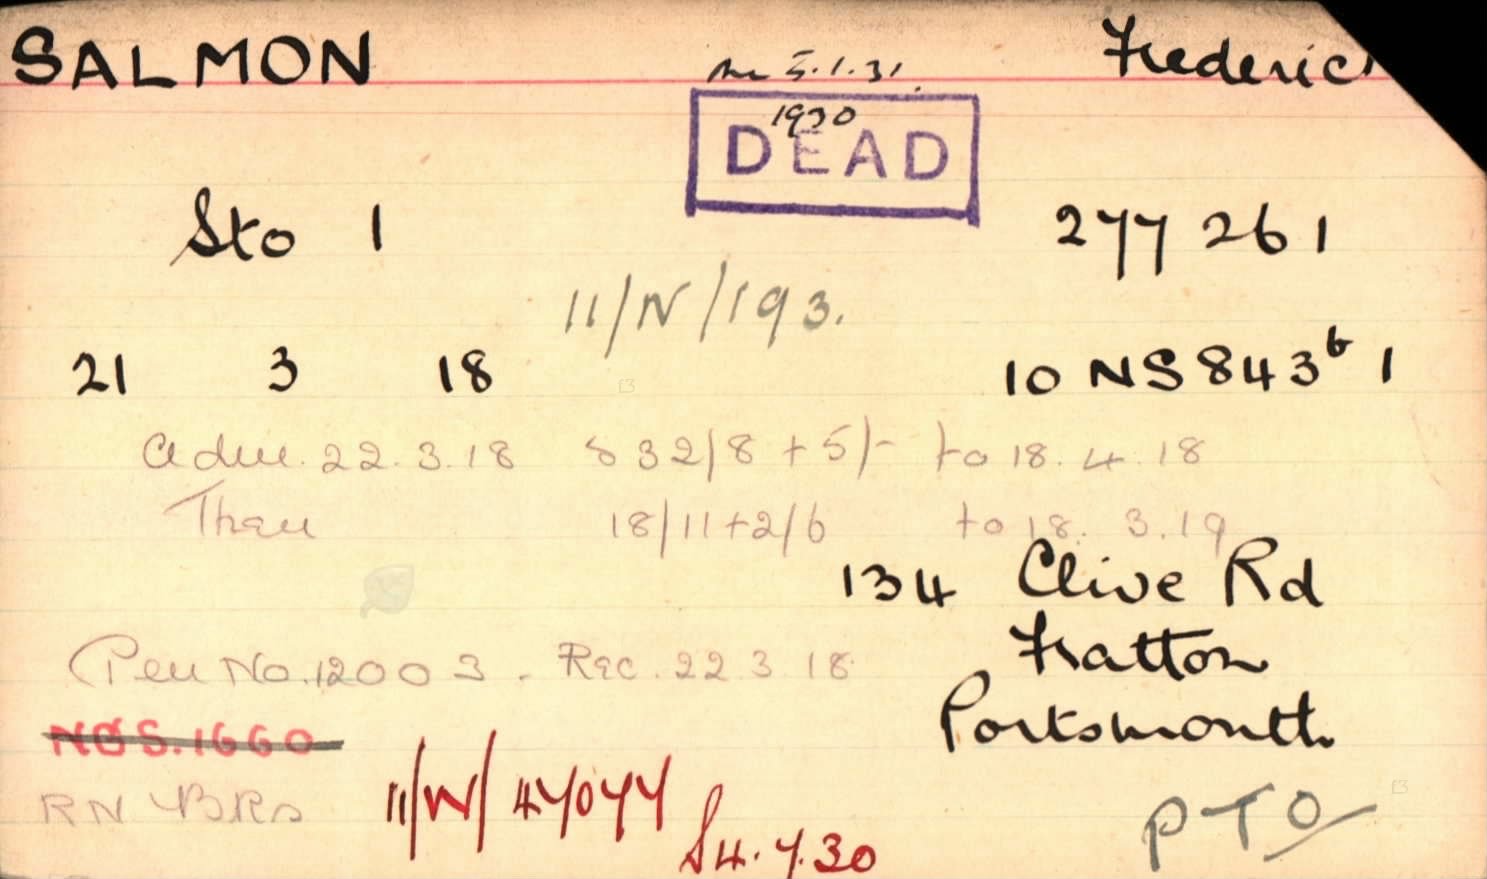 SALMON Frederic
5.1.31.
1930
DEAD
Sto 1 277 261
11/N/193.
21 3 18 10 NS 843⁶ 1
Adm. 22.3.18 @ 32/8 + 5/- to 18.4.18
Then 18/11+2/6 to 18.3.19
134 Clive Rd
Fratton
Portsmouth
Pen No. 12003. Rec. 22 3 18
NOS.1660
RN BKs 11/N/ 47077
4.7.30
PTO